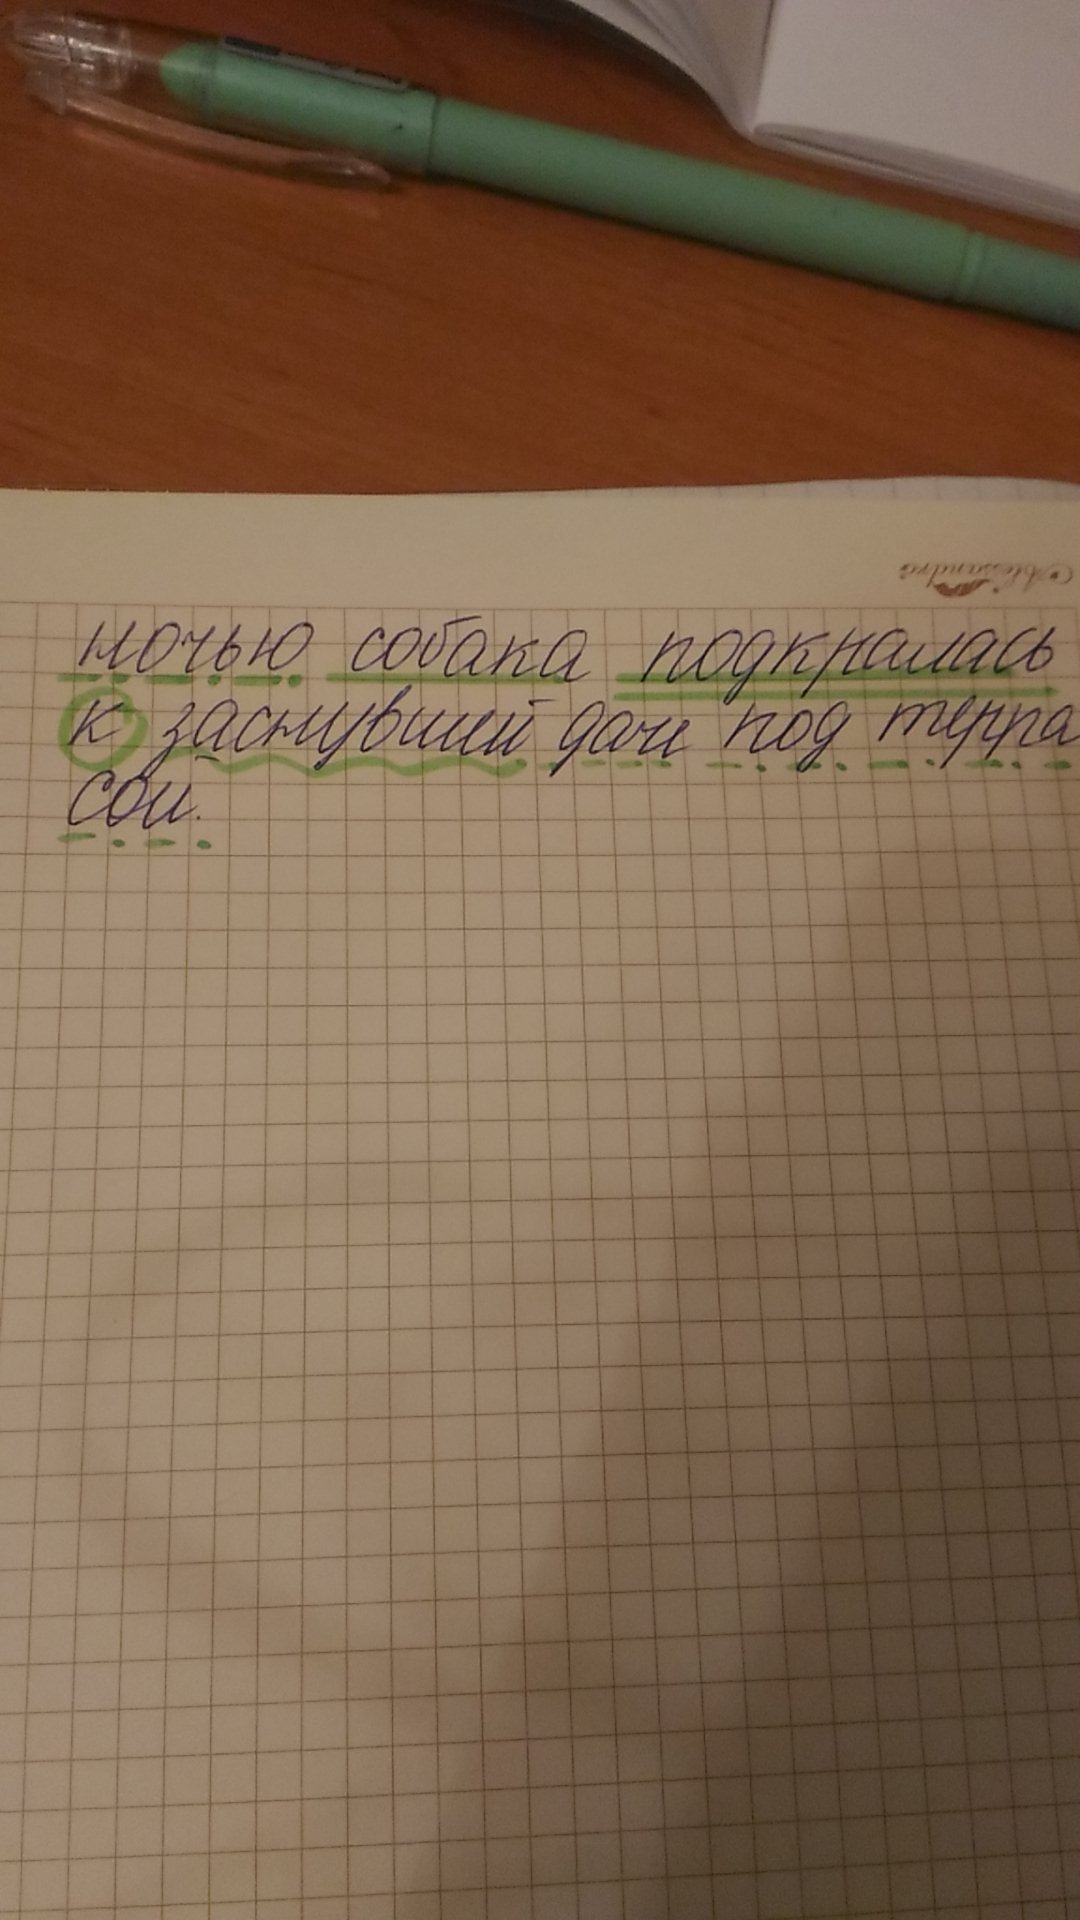 Alessandro
ночью собака подкралась
к заснувшей даче под терра
сой.